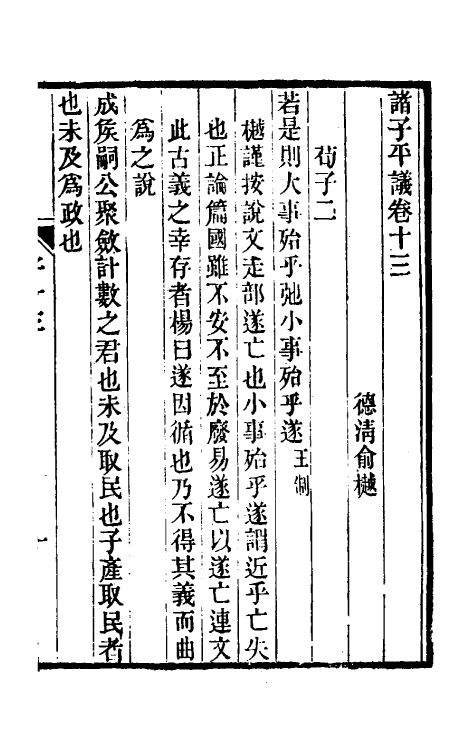 諸子平議卷十三
德清俞樾
荀子二
若是則大事殆乎弛小事殆乎遂王制
樾謹按說文辵部遂亡也小事殆乎遂謂近乎亡失
也正論篇國雖不安不至於廢易遂亡以遂亡連文
此古義之幸存者楊曰遂因循也乃不得其義而曲
爲之說
成矦嗣公聚斂計數之君也未及取民也子產取民者
也未及爲政也